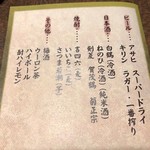 ビール…
アサヒ スーパードライ
キリン ラガー・一番搾り
日本酒…
白鶴(冷酒)
ねのひ(冷酒)(純米酒)
剣菱 賀茂鶴 菊正宗
焼酎…
吉四六(麦)
いいちこ(麦)
さつま
その他…
梅酒
ウーロン茶
ハイボール
酎ハイレモン